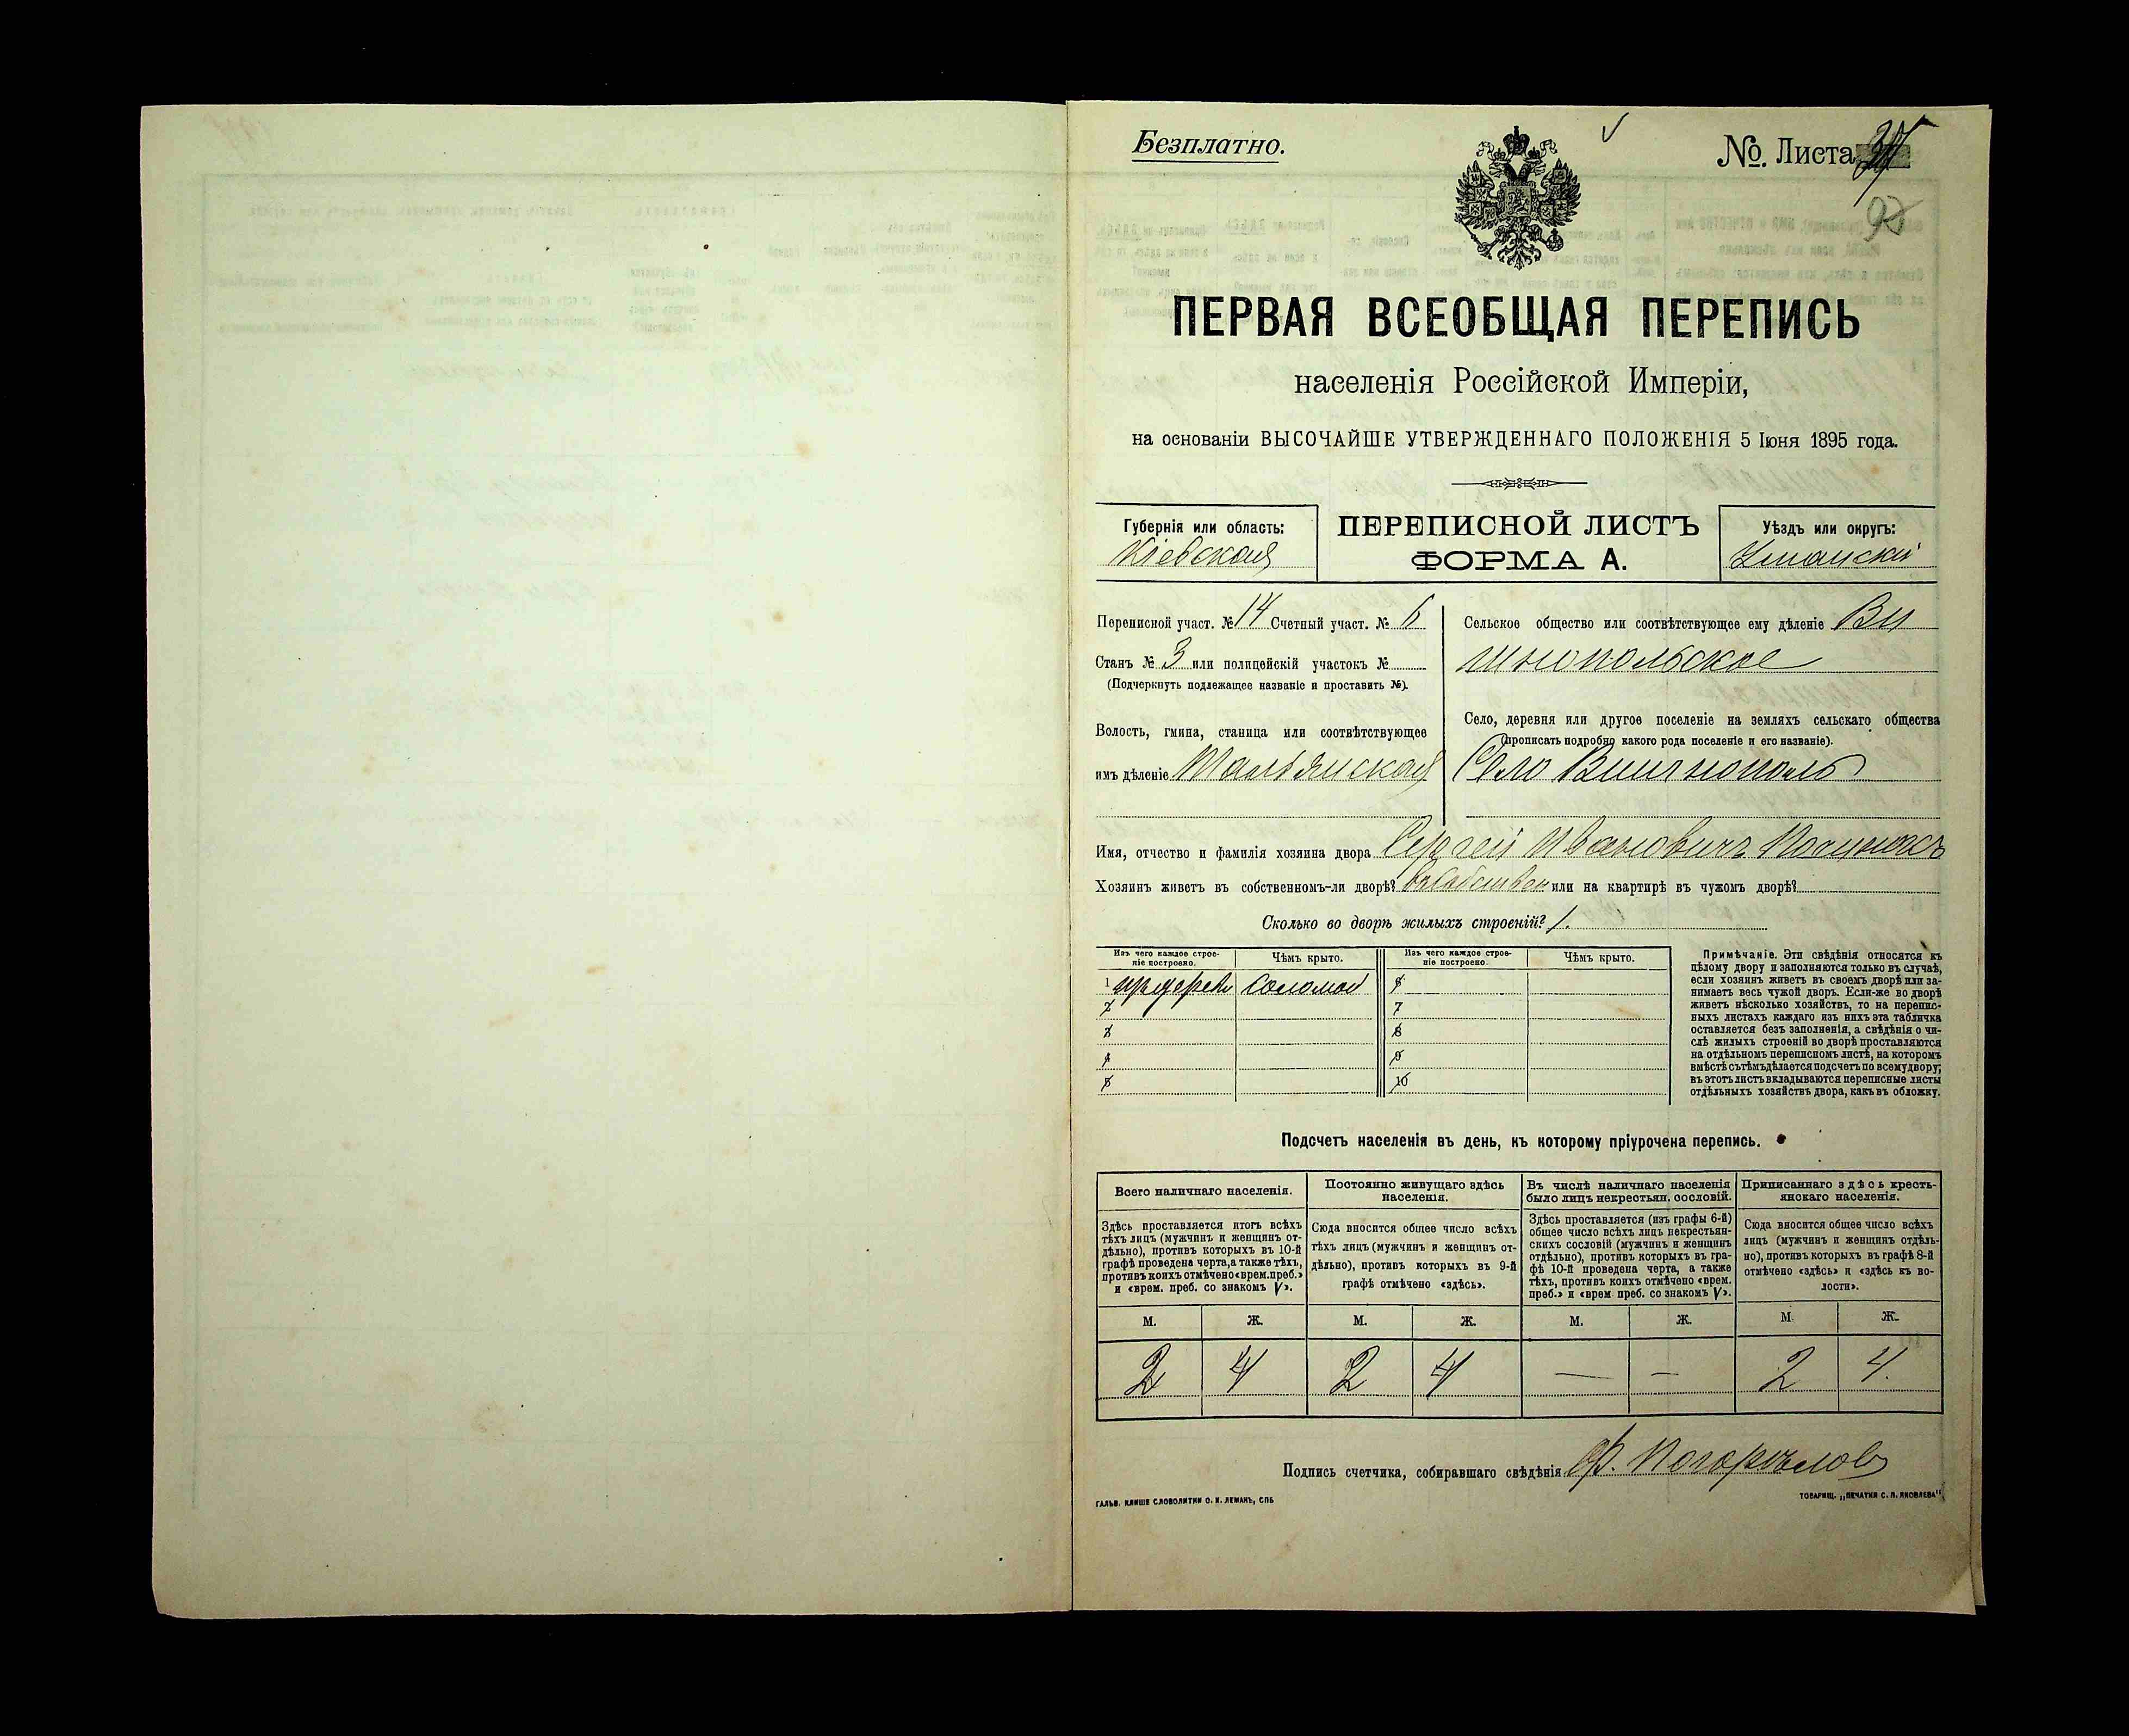 Безплатно.
№. Листа
ПЕРВАЯ ВСЕОБЩАЯ ПЕРЕПИСЬ
населенія Россійской Имперіи,
на основаніи ВЫСОЧАЙШЕ УТВЕРЖДЕННАГО ПОЛОЖЕНІЯ 5 Іюня 1895 года.
Губернія или область:
Кіевская
ПЕРЕПИСНОЙ ЛИСТЪ
ФОРМА А.
Уѣздъ или округъ:
Уманскій
Переписной участ. № 14 Счетный участ. № 6
Станъ № 3 или полицейскій участокъ №
(Подчеркнуть подлежащее названіе и проставить №).
Волость, гмина, станица или соотвѣтствующее
имъ дѣленіе Тальянская
Сельское общество или соотвѣтствующее ему дѣленіе Ви
шнопольское
Село, деревня или другое поселеніе на земляхъ сельскаго общества
(прописать подробно какого рода поселеніе и его названіе).
Село Вишнополь
Имя, отчество и фамилія хозяина двора Сергей Ивановичъ
Хозяинъ живетъ въ собственномъ-ли дворѣ? въ собствен или на квартирѣ въ чужомъ дворѣ?
Сколько во дворѣ жилыхъ строеній? 1.
Изъ чего каждое строе-
ніе построено.
Чѣмъ крыто.
Изъ чего каждое строе-
ніе построено.
Чѣмъ крыто.
1 изъ дерева Соломой 6
2 7
3 8
4 9
5 10
Примѣчаніе. Эти свѣдѣнія относятся къ
цѣлому двору и заполняются только въ случаѣ,
если хозяинъ живетъ въ своемъ дворѣ или за-
нимаетъ весь чужой дворъ. Если-же во дворѣ
живетъ нѣсколько хозяйствъ, то на перепис-
ныхъ листахъ каждаго изъ нихъ эта табличка
оставляется безъ заполненія, а свѣдѣнія о чи-
слѣ жилыхъ строеній во дворѣ проставляются
на отдѣльномъ переписномъ листѣ, на которомъ
вмѣстѣ съ тѣмъ дѣлается подсчетъ по всему двору;
въ этотъ листъ вкладываются переписные листы
отдѣльныхъ хозяйствъ двора, какъ въ обложку.
Подсчетъ населенія въ день, къ которому пріурочена перепись.
Всего наличнаго населенія.
Здѣсь проставляется итогъ всѣхъ
тѣхъ лицъ (мужчинъ и женщинъ от-
дѣльно), противъ которыхъ въ 10-й
графѣ проведена черта, а также тѣхъ,
противъ коихъ отмѣчено «врем. преб.»
и «врем. преб. со знакомъ V».
Постоянно живущаго здѣсь
населенія.
Сюда вносится общее число всѣхъ
тѣхъ лицъ (мужчинъ и женщинъ от-
дѣльно), противъ которыхъ въ 9-й
графѣ отмѣчено «здѣсь».
Въ числѣ наличнаго населенія
было лицъ некрестьян. сословій.
Здѣсь проставляется (изъ графы 6-й)
общее число всѣхъ лицъ некрестьян-
скихъ сословій (мужчинъ и женщинъ
отдѣльно), противъ которыхъ въ гра-
фѣ 10-й проведена черта, а также
тѣхъ, противъ коихъ отмѣчено «врем.
преб.» и «врем преб. со знакомъ V».
Приписаннаго здѣсь кресть-
янскаго населенія.
Сюда вносится общее число всѣхъ
лицъ (мужчинъ и женщинъ отдѣль-
но), противъ которыхъ въ графѣ 8-й
отмѣчено «здѣсь» и «здѣсь къ во-
лости».
М. Ж. М. Ж. М. Ж. М. Ж.
2 4 2 4 — — 2 4.
Подпись счетчика, собиравшаго свѣдѣнія Ф. Погорѣловъ
ГАЛЬВ. КЛИШЕ СЛОВОЛИТНИ О. И. ЛЕМАНЪ, СПБ
ТОВАРИЩ. „ПЕЧАТНЯ С. П. ЯКОВЛЕВА"